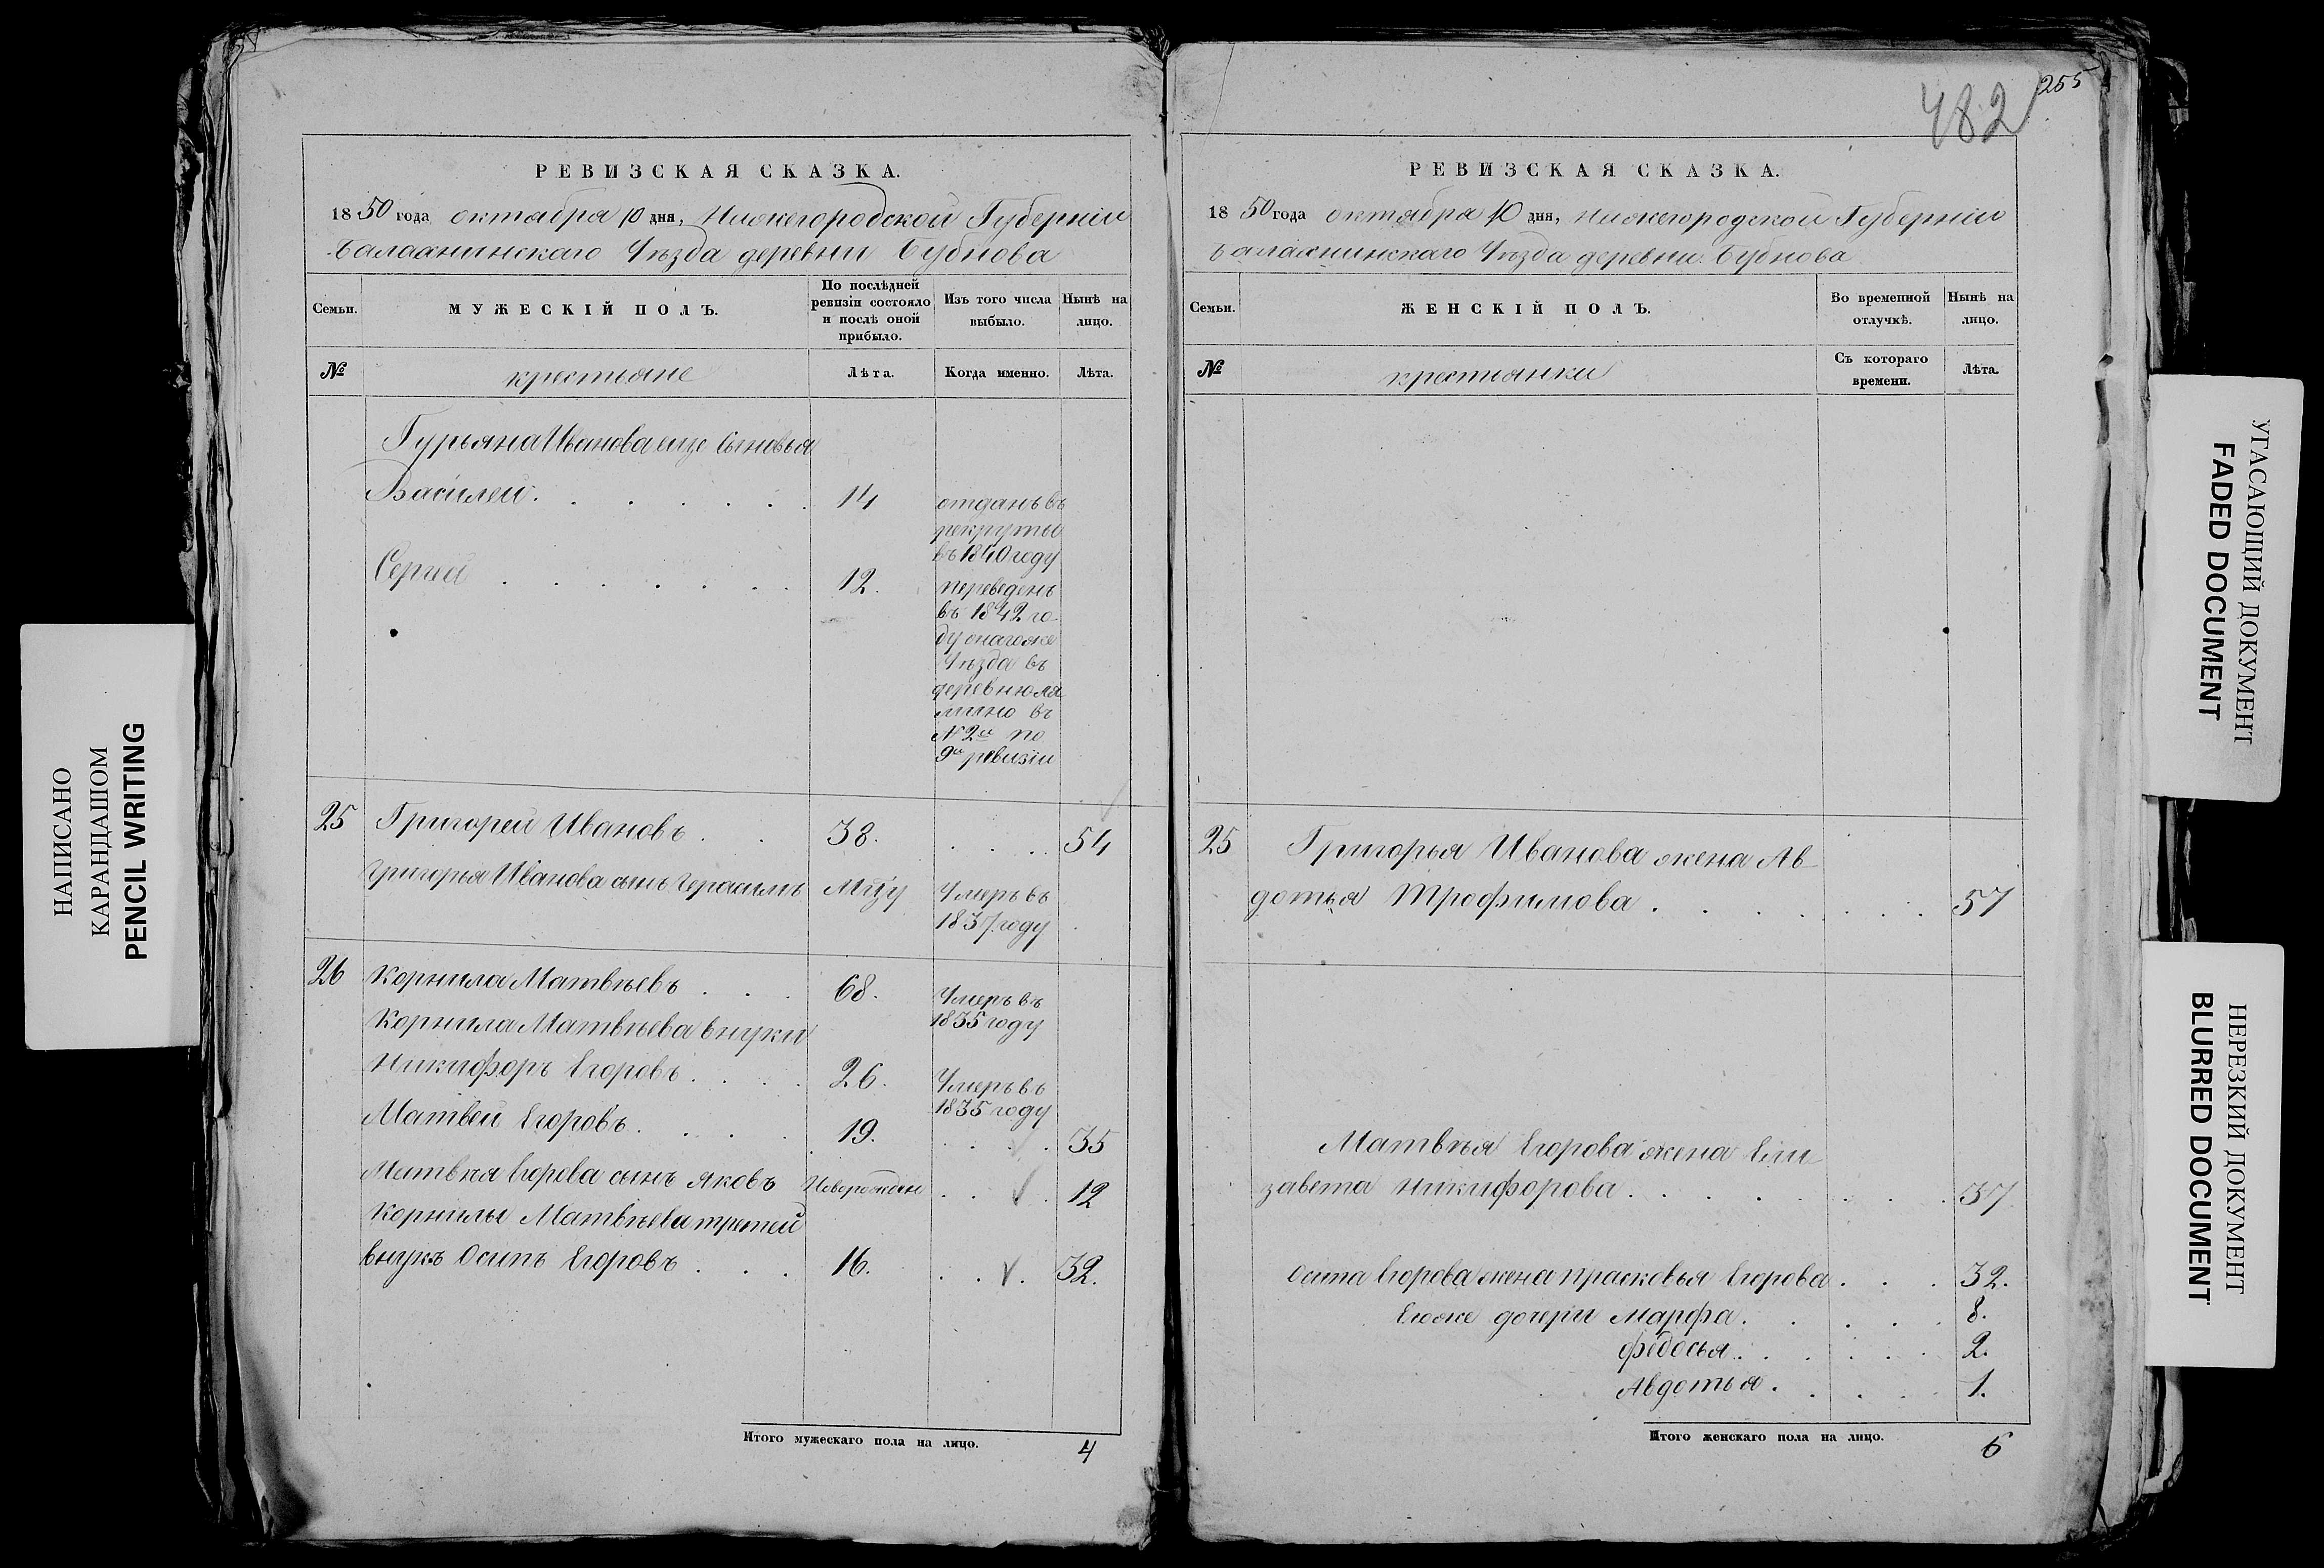 РЕВИЗСКАЯ СКАЗКА.
1850 года октября 10 дня, Нижегородской Губерніи
Балахнинскаго Уѣзда деревни Бубнова
Семьи.
МУЖЕСКІЙ ПОЛЪ.
По послѣдней
ревизіи состояло
и послѣ оной
прибыло.
Изъ того числа
выбыло.
Нынѣ на
лицо.
№
крестьяне
Лѣта.
Когда именно.
Лѣта.
Гурьяна Иванова еще сыновья
Василей. 14 отданъ въ
рекруты
въ 1840 году
Сергій 12. переведенъ
въ 1842 го
ду онагоже
Уѣзда въ
деревню Ля
лино въ
№ 2й по
9й ревизіи
25 Григорей Ивановъ 38. 54
Григорья Иванова сынъ Герасимъ Мцу Умеръ въ
1837 году
26 Корнила Матвѣевъ 68. Умеръ въ
1835 году
Корнила Матвѣева внуки
Никифоръ Егоровъ. 26. Умеръ въ
1835 году
Матвей Егоровъ. 19. 35
Матвѣя Егорова сынъ Яковъ Новорожден 12
Корнилы Матвѣева третей
внукъ Осипъ Егоровъ 16. 32.
Итого мужескаго пола на лицо. 4
255
482
РЕВИЗСКАЯ СКАЗКА.
1850 года октября 10 дня, Нижегородской Губерніи
Балахнинскаго Уѣзда деревни Бубнова
Семьи.
ЖЕНСКІЙ ПОЛЪ.
Во временной
отлучкѣ.
Нынѣ на
лицо.
№
крестьянки
Съ котораго
времени.
Лѣта.
25 Григорья Иванова жена Ав
дотья Трофимова. 57
Матвѣя Егорова жена Ели
завета Никифорова. 37
Осипа Егорова жена Прасковья Егорова. 32.
Егоже дочери Марфа. 8.
Федосья. 2.
Авдотья. 1.
Итого женскаго пола на лицо. 6
НАПИСАНО
КАРАНДАШОМ
PENCIL WRITING
УГАСАЮЩИЙ ДОКУМЕНТ
FADED DOCUMENT
НЕРЕЗКИЙ ДОКУМЕНТ
BLURRED DOCUMENT